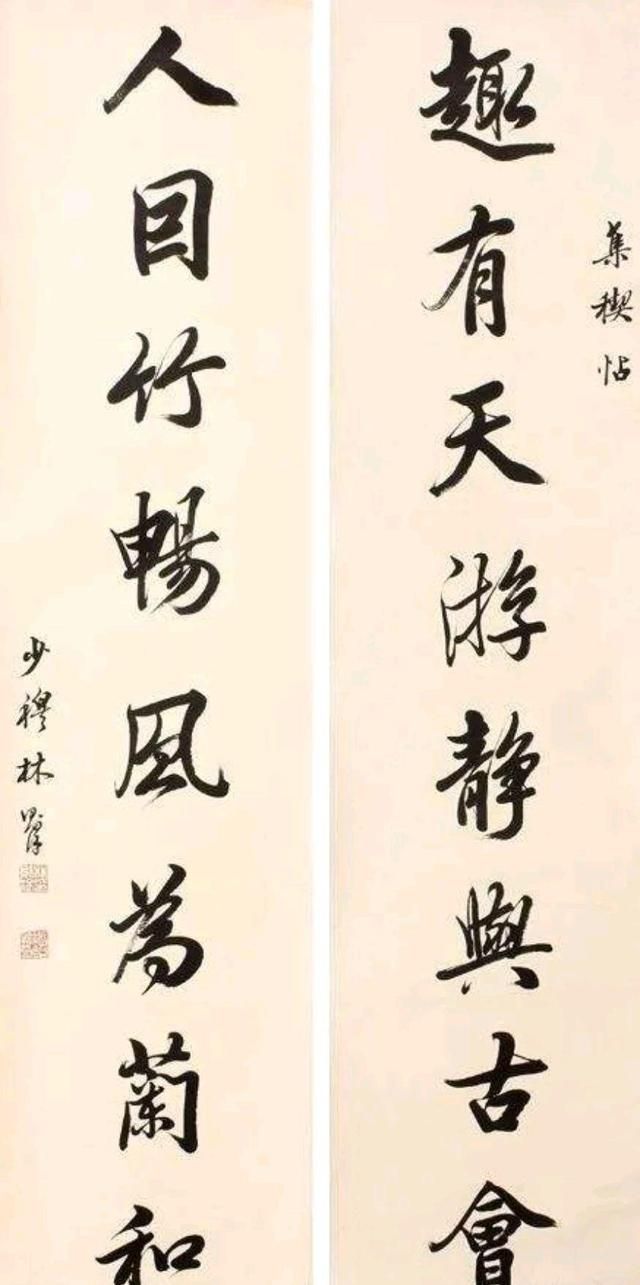 集稧帖
趣有天游静與古會
人因竹暢風為蘭和
少穆林則徐